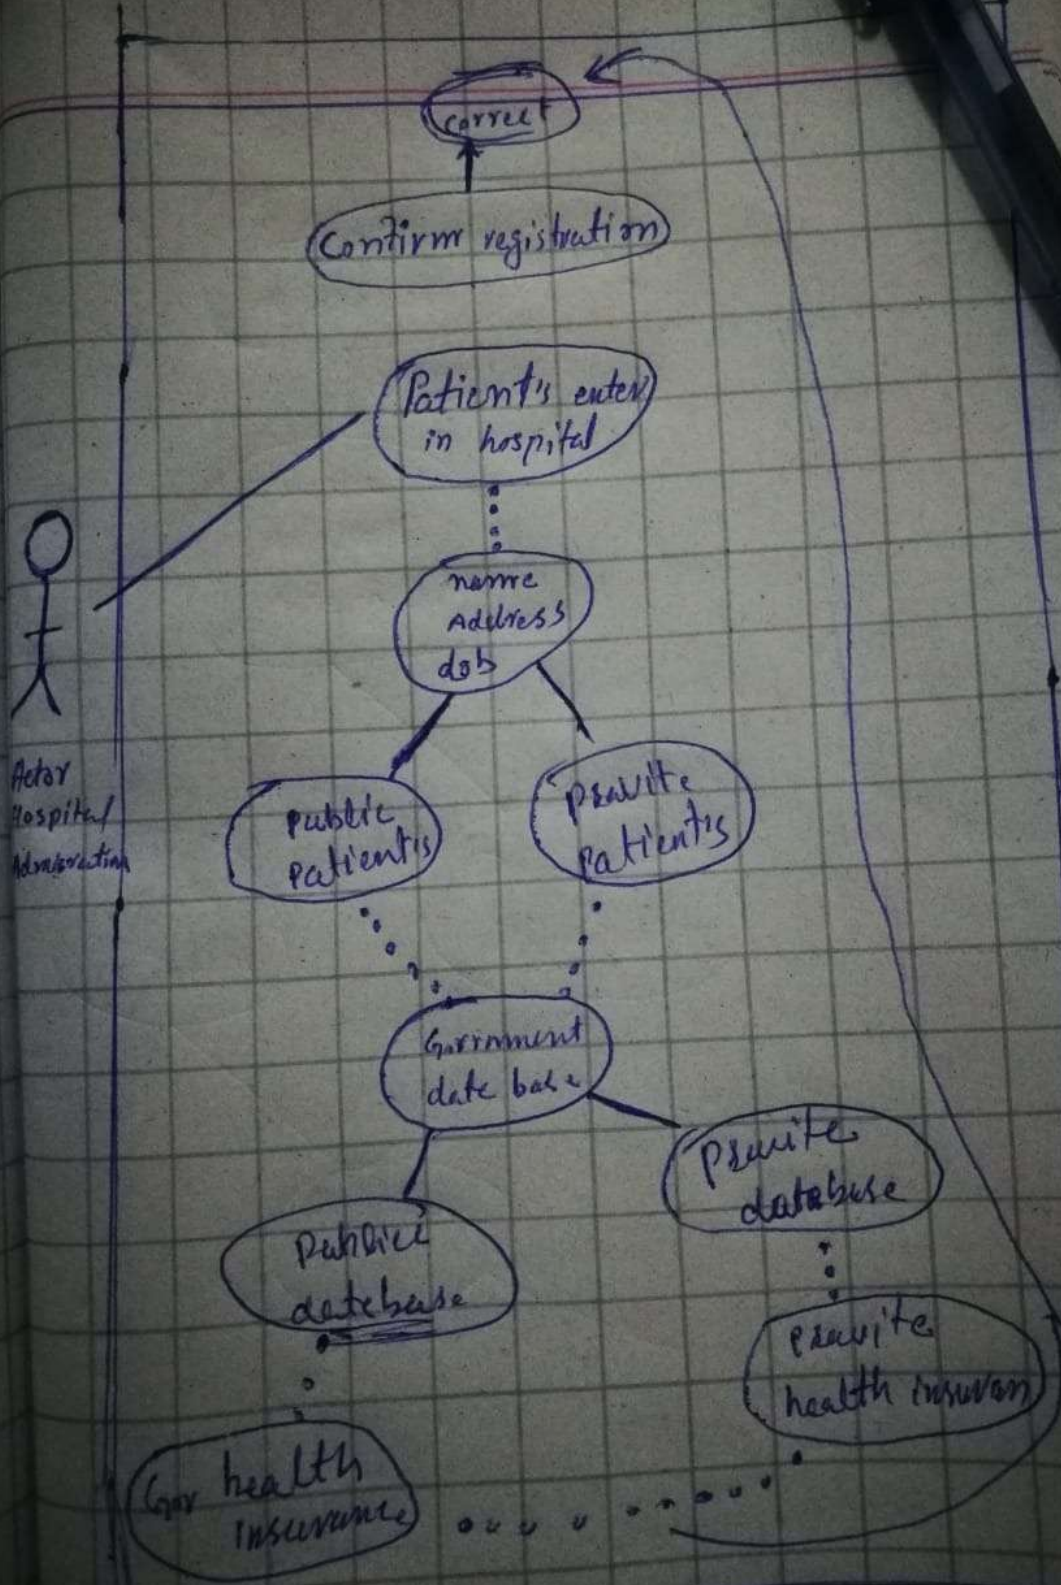 correct
Confirm registration
Patient's enter
in hospital
name
Address
dob
Actor
Hospital
public
patient's
pravite
patient's
Gorrnment
date base
pravite
database
Publicc
datebase
pravite
health insuran
Gov health
insurance